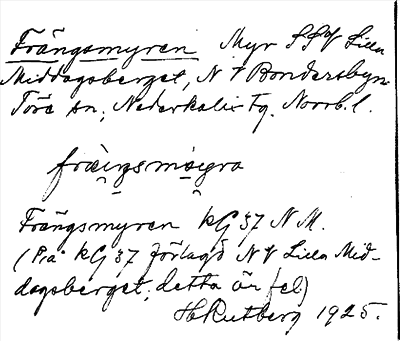 Frängsmyren Myr SSV Lilla
Middagsberget, N f Bondersbyn
Töre sn, Nederkalix tg. Norrb. l.
fräŋsmøyra
Frängsmyren KG 37 NM.
(På KG 37 förlagd NV Lilla Mid-
dagsberget; detta är fel)
H Rutberg 1925.